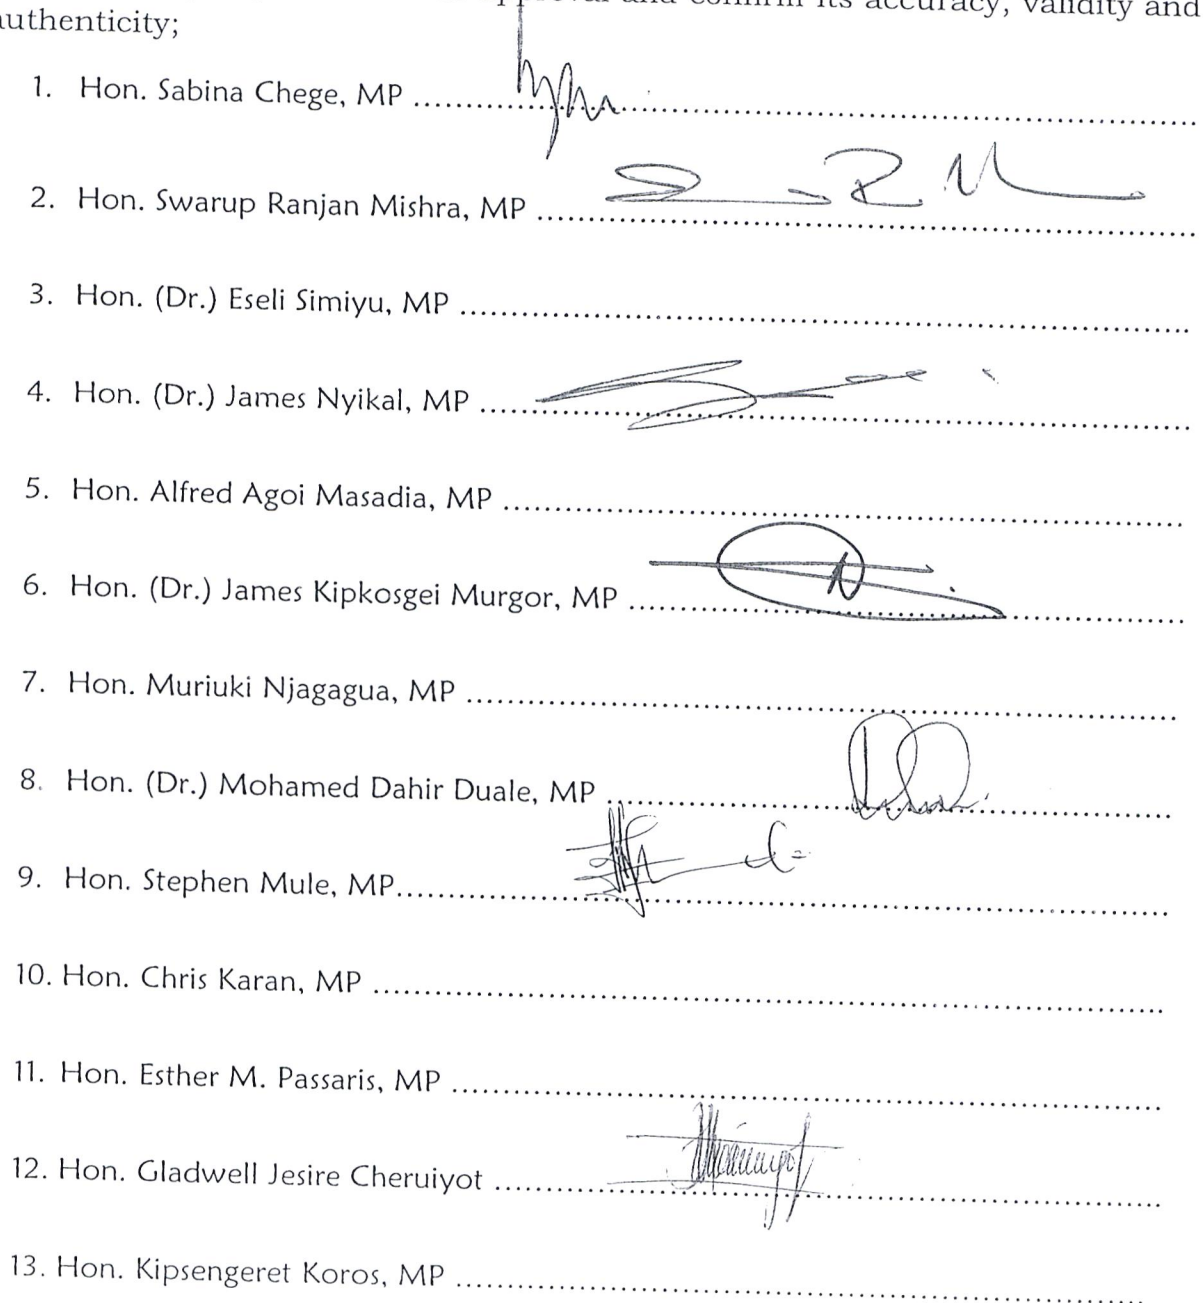 and confirm its accuracy, validity and
authenticity;
1. Hon. Sabina Chege, MP ........................
2. Hon. Swarup Ranjan Mishra, MP ........................
3. Hon. (Dr.) Eseli Simiyu, MP ........................
4. Hon. (Dr.) James Nyikal, MP ........................
5. Hon. Alfred Agoi Masadia, MP ........................
6. Hon. (Dr.) James Kipkosgei Murgor, MP ........................
7. Hon. Muriuki Njagagua, MP ........................
8. Hon. (Dr.) Mohamed Dahir Duale, MP ........................
9. Hon. Stephen Mule, MP........................
10. Hon. Chris Karan, MP ........................
11. Hon. Esther M. Passaris, MP ........................
12. Hon. Gladwell Jesire Cheruiyot ........................
13. Hon. Kipsengeret Koros, MP ........................